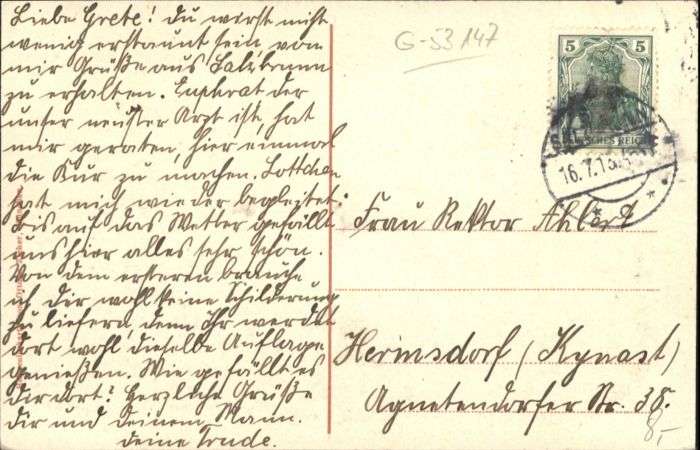 Liebe Grete! Du wirst nicht
wenig erstaunt sein von
mir Grüße aus Salzbrunn
zu erhalten. Euphrat der
unser neuster Arzt ist, hat
mir geraten, hier einmal
die Kur zu machen. Lottchen
hat mich wieder begleitet.
Bis auf das Wetter gefällt
uns hier alles sehr schön.
Von dem ersteren brauche
ich dir wohl keine Schilderung
zu liefern, denn Ihr werdet
dort wohl dieselbe Auflage
genießen. Wie gefällt es
dir dort? Herzliche Grüße
dir und deinem Mann.
deine Trude.
G-53 147
5 5
DEUTSCHES REICH
16.7.13
Frau Rektor Ahlert
Hermsdorf (Kynast)
Agnetendorfer Str. 38.
8,-